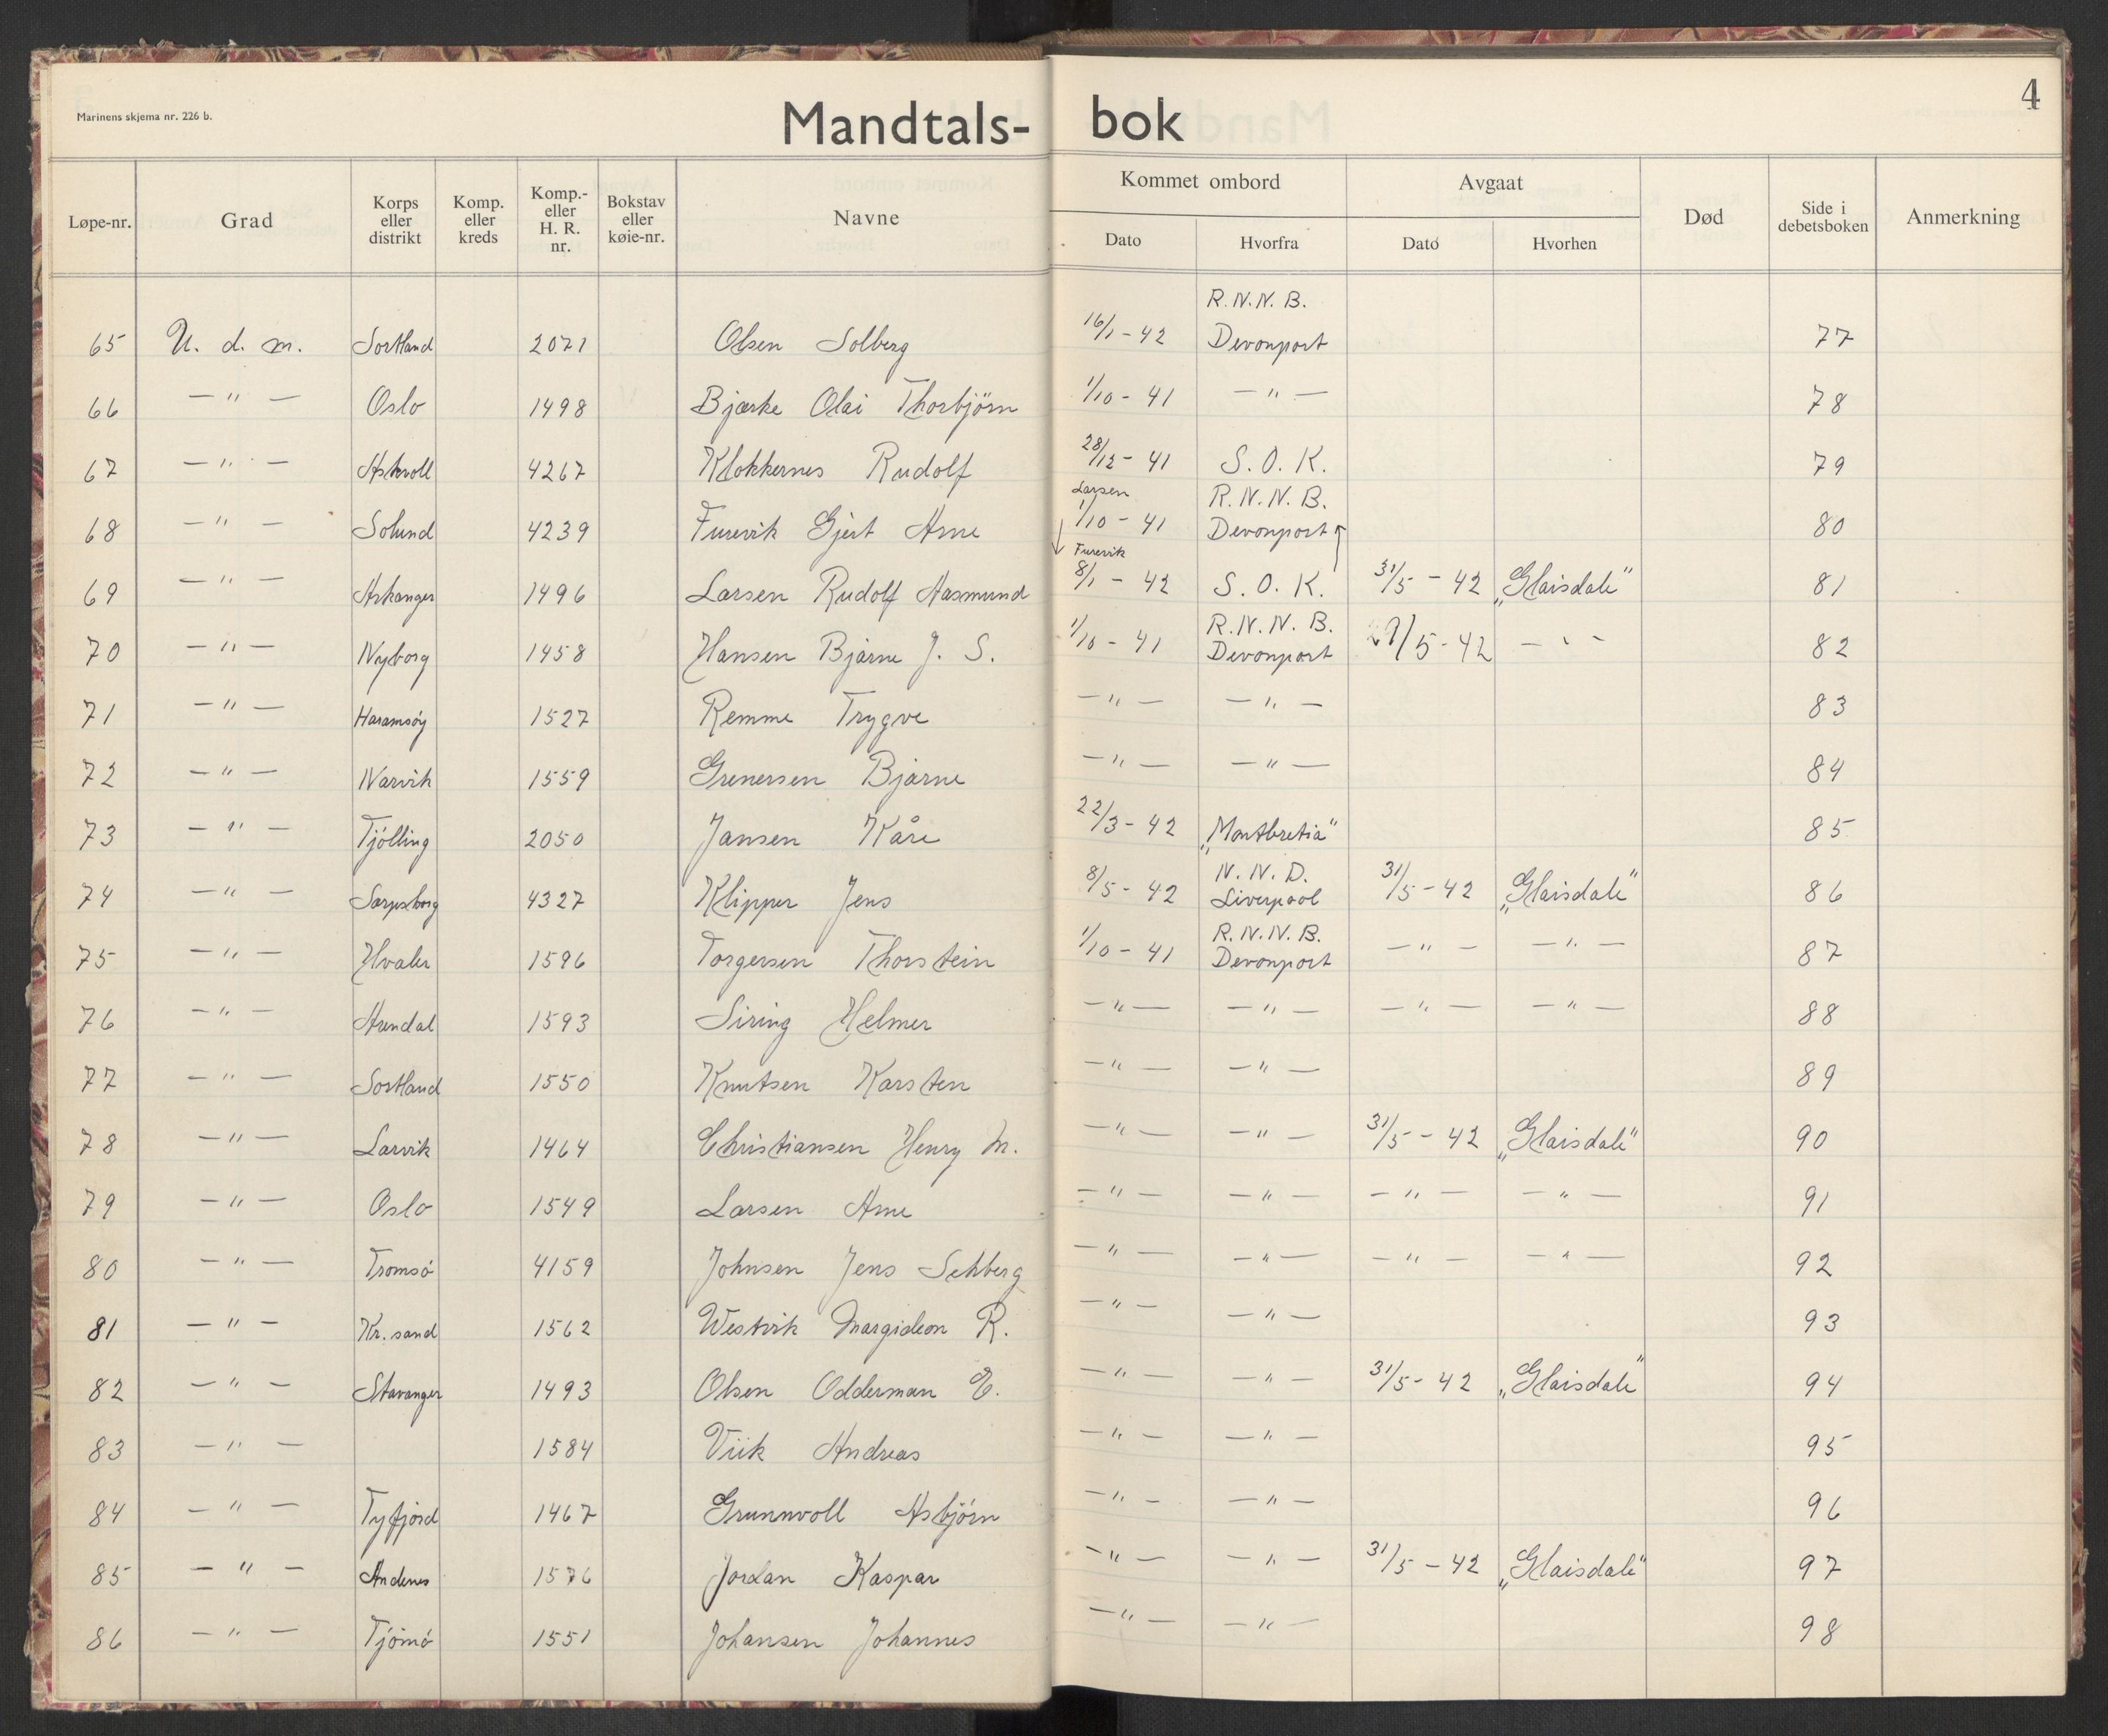 Marinens skjema nr. 226 b.
Mandtals- bok
4
Løpe-nr. Grad Korps eller distrikt Komp. eller kreds Komp.- eller H. R. nr. Bokstav eller køie-nr. Navne Kommet ombord Dato Hvorfra Avgaat Dato Hvorhen Død Side i debetsboken Anmerkning
65 U. d. m. Sortland 2071 Olsen Solberg 16/1 - 42 R.N.N.B. Devonport 77
66 — " — Oslo 1498 Bjærke Olai Thorbjörn 1/10 - 41 — " — 78
67 — " — Askvoll 4267 Klokkernes Rudolf 28/12 - 41 S. O. K. 79
68 — " — Solund 4239 Furevik Gjert Arne Larsen 1/10 - 41 R.N.N.B. Devonport 80
69 — " — Askanger 1496 Larsen Rudolf Aasmund Furevik 8/1 - 42 S. O. K. 31/5 - 42 „Glaisdale" 81
70 — " — Nyborg 1458 Hansen Bjarne J. S. 1/10 - 41 R.N.N.B. Devonport /5 - 42 — " — 82
71 — " — Haramsöy 1527 Remme Trygve — " — — " — 83
72 — " — Narvik 1559 Grenersen Bjarne — " — — " — 84
73 — " — Tjölling 2050 Jansen Kåre 22/3 - 42 „Montbretia" 85
74 — " — Sarpsborg 4327 Klipper Jens 8/5 - 42 N.N.D. Liverpool 31/5 - 42 „Glaisdale" 86
75 — " — Hvaler 1596 Torgersen Thorstein 1/10 - 41 R.N.N.B. Devonport — " — — " — 87
76 — " — Arendal 1593 Siring Helmer — " — — " — — " — — " — 88
77 — " — Sortland 1550 Knutsen Karsten — " — — " — 89
78 — " — Larvik 1464 Christiansen Henry M. — " — — " — 31/5 - 42 „Glaisdale" 90
79 — " — Oslo 1549 Larsen Arne — " — — " — — " — — " — 91
80 — " — Tromsö 4159 Johnsen Jens Sehberg — " — — " — — " — — " — 92
81 — " — Kr.sand 1562 Westvik Margideon R. — " — — " — 93
82 — " — Stavanger 1493 Olsen Odderman E. — " — — " — 31/5 - 42 „Glaisdale" 94
83 — " — 1584 Viik Andreas — " — — " — 95
84 — " — Tyfjord 1467 Grunnvoll Asbjörn — " — — " — 96
85 — " — Andenes 1576 Jordan Kaspar — " — — " — 31/5 - 42 „Glaisdale" 97
86 — " — Tjömö 1551 Johansen Johannes — " — — " — 98